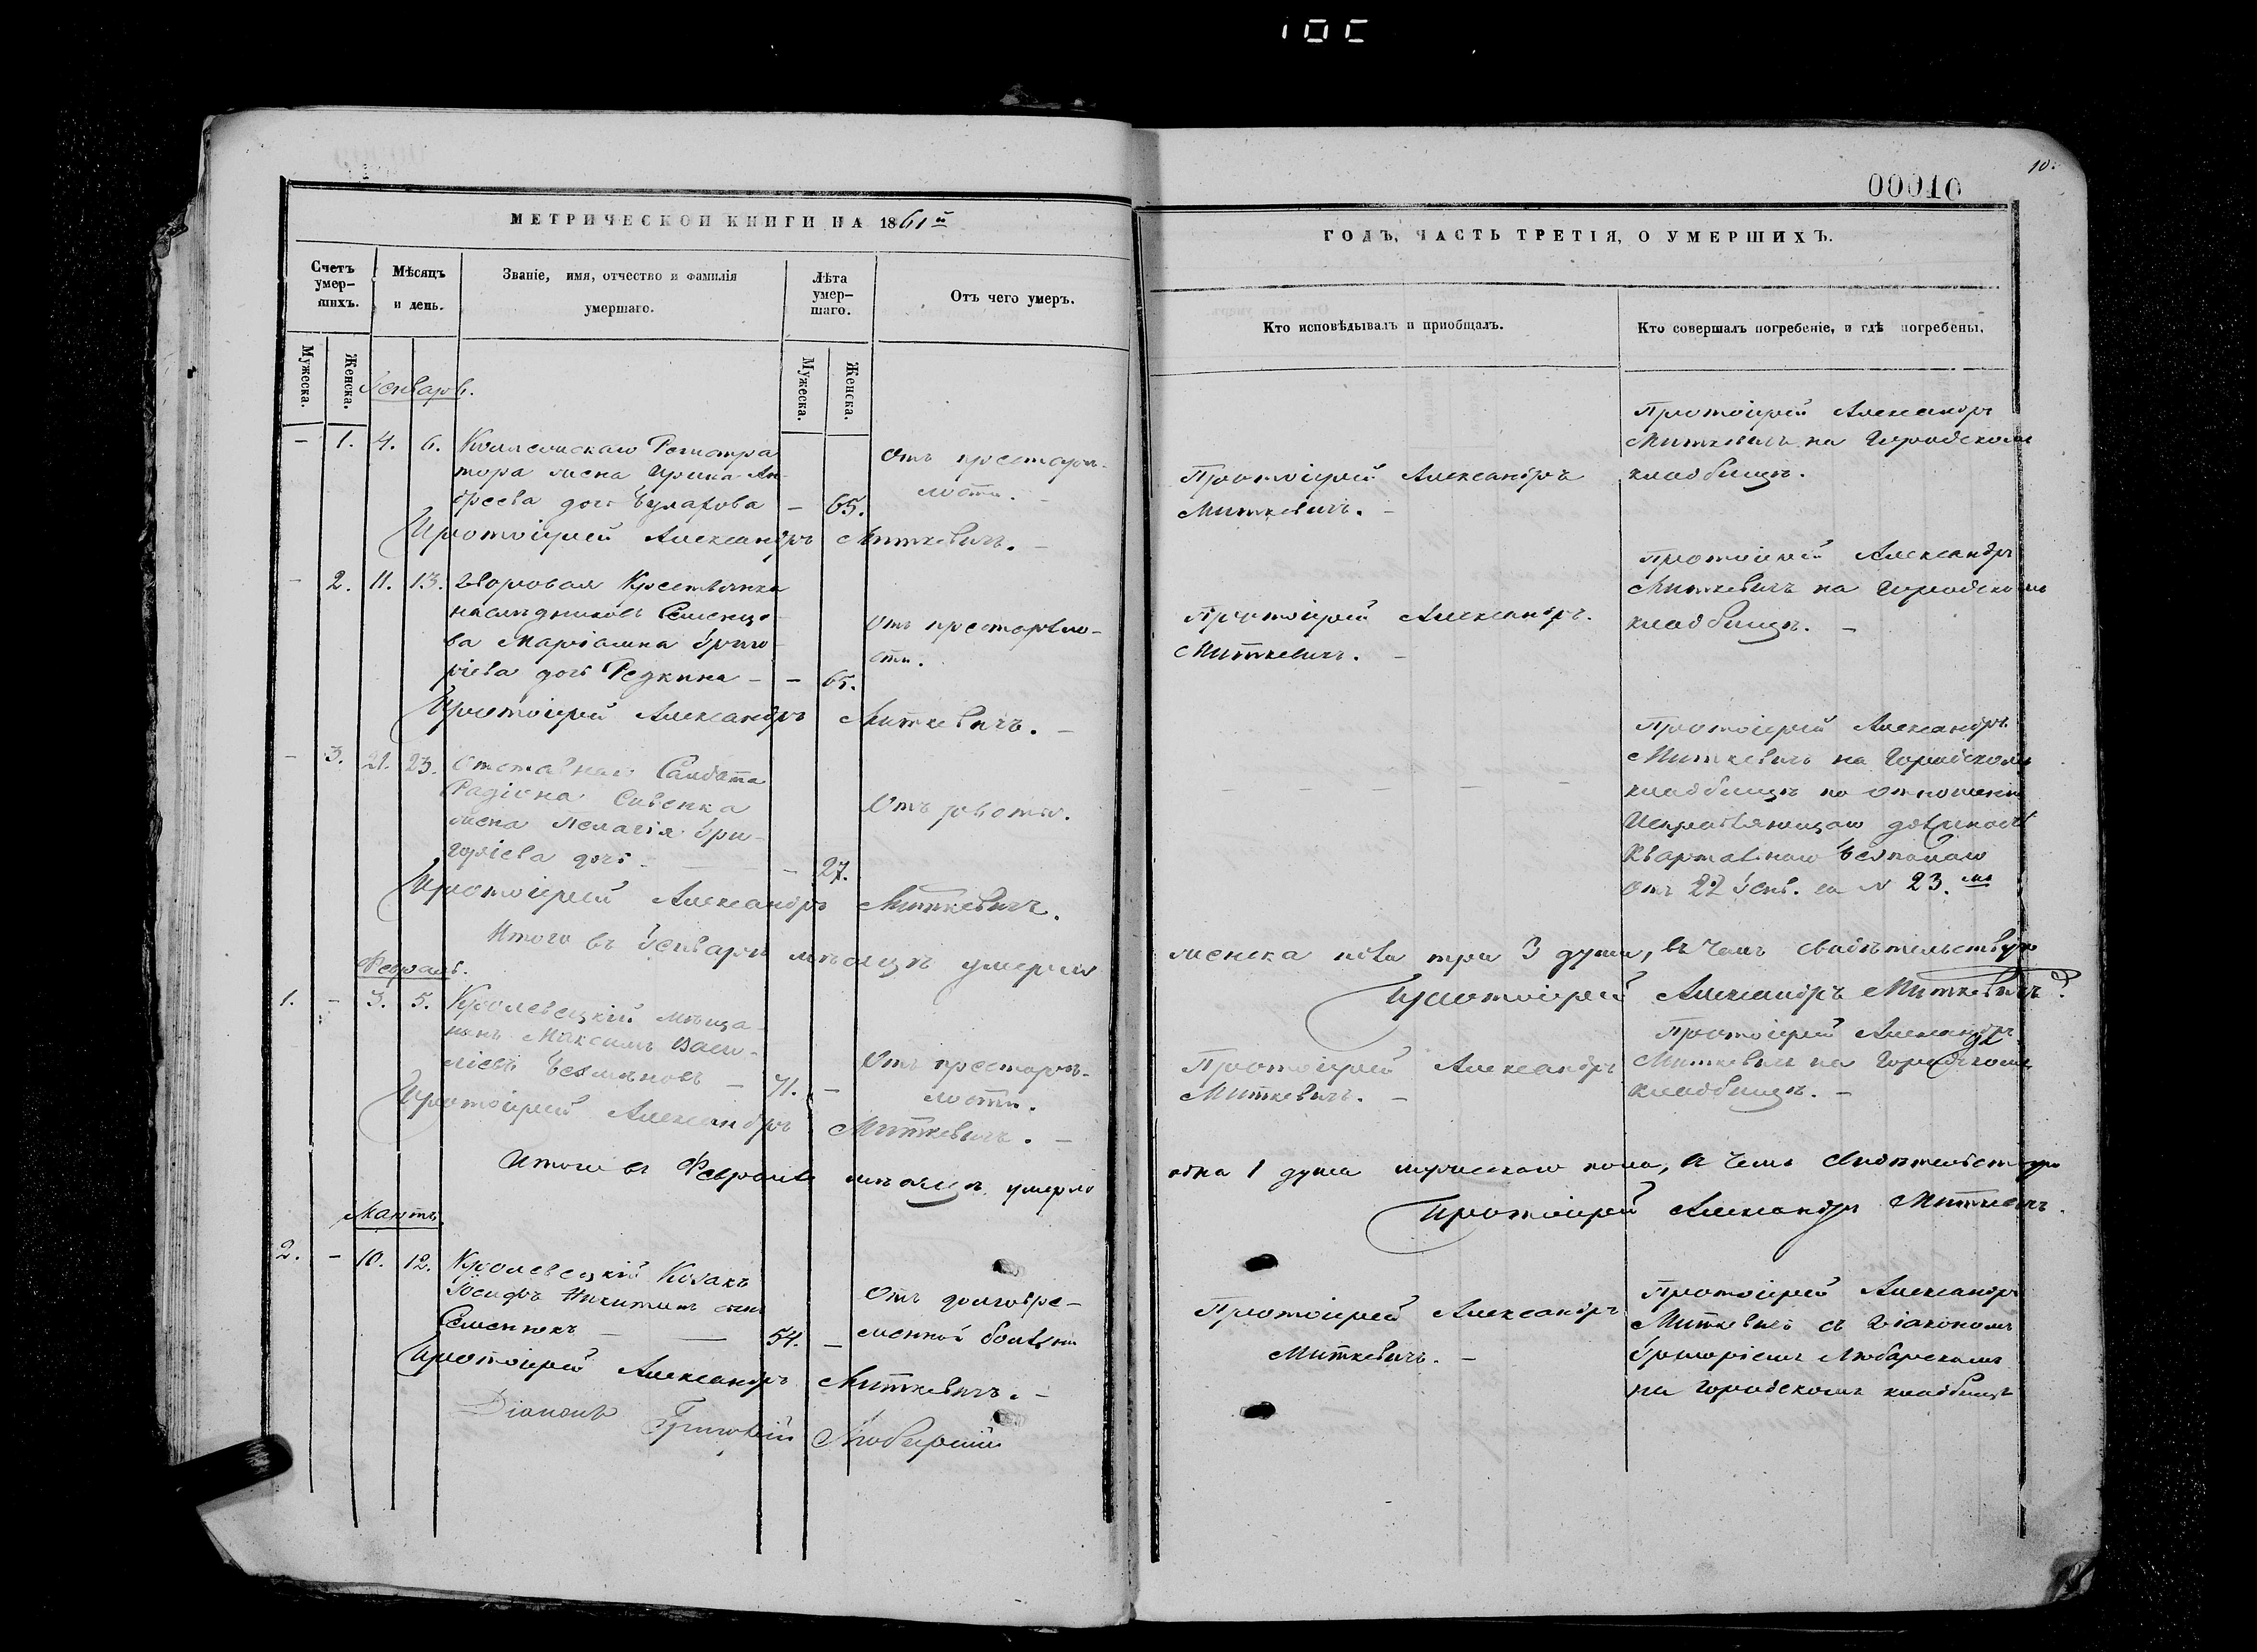 МЕТРИЧЕСКОЙ КНИГИ НА 1861й
Счетъ умер-шихъ.
Мѣсяцъ и день.
Званіе, имя, отчество и фамилія умершаго.
Лѣта умер-шаго.
Отъ чего умеръ.
Мужеска.
Женска.
Мужеска.
Женска.
Январь.
– 1. 4. 6. Коллежскаго Регистра
тора жена Ирина Ан-
дреева дочь – 65.
Отъ престарѣ-
лости.
Протоіерей Александръ Миткевичъ. –
– 2. 11. 13. Дворовая Крестьянка
наслѣдниковъ
ва Маріамна Григо-
рьева дочь Редкина – – 65.
Отъ престарѣло-
сти.
Протоіерей Александръ Миткевичъ. –
– 3. 21. 23. Отставнаго Салдата
Радіона Сивенка
жена Пелагія Гри-
горьева дочь – – 27.
Отъ рвоты.
Протоіерей Александръ Миткевичъ.
Итого въ Январѣ мѣсяцѣ умерло
Февраль.
1. – 3. 5. Кролевецкій мѣща-
нинъ Максимъ Васи-
ліевъ – 71. –
Отъ престарѣ-
лости.
Протоіерей Александръ Миткевичъ. –
Итого въ Февралѣ мѣсяцѣ умерло
Мартъ.
2. – 10. 12. Кролевецкій Козакъ
Іосифъ Никитинъ сынъ
– 54. –
Отъ долговре-
менной болѣзни
Протоіерей Александръ Миткевичъ. –
Діаконъ Григорій Любарскій
10.
00010
ГОДЪ, ЧАСТЬ ТРЕТІЯ, О УМЕРШИХЪ.
Кто исповѣдывалъ и пріобщалъ.
Кто совершалъ погребеніе, и гдѣ погребены.
Протоіерей Александръ
Миткевичъ. –
Протоіерей Александръ
Миткевичъ на Городскомъ
кладбищѣ.
Протоіерей Александръ.
Миткевичъ. –
Протоіерей Александръ
Миткевичъ на Городскомъ
кладбищѣ. –
– – – – – –
Протоіерей Александръ
Миткевичъ на Городскомъ
кладбищѣ по отношенію
Исправляющаго должность
Квартальнаго
отъ 22 Янв. за № 23.мъ
женска пола три 3 души, въ чемъ свидѣтельствую
Протоіерей Александръ Миткевичъ.
Протоіерей Александръ
Миткевичъ. –
Протоіерей Александръ
Миткевичъ на Городскомъ
кладбищѣ. –
одна 1 душа мужескаго пола, въ чемъ свидѣтельствую
Протоіерей Александръ Миткевичъ.
Протоіерей Александръ
Миткевичъ. –
Протоіерей Александръ
Миткевичъ съ Діакономъ
Григоріемъ Любарскимъ
на Городскомъ кладбищѣ